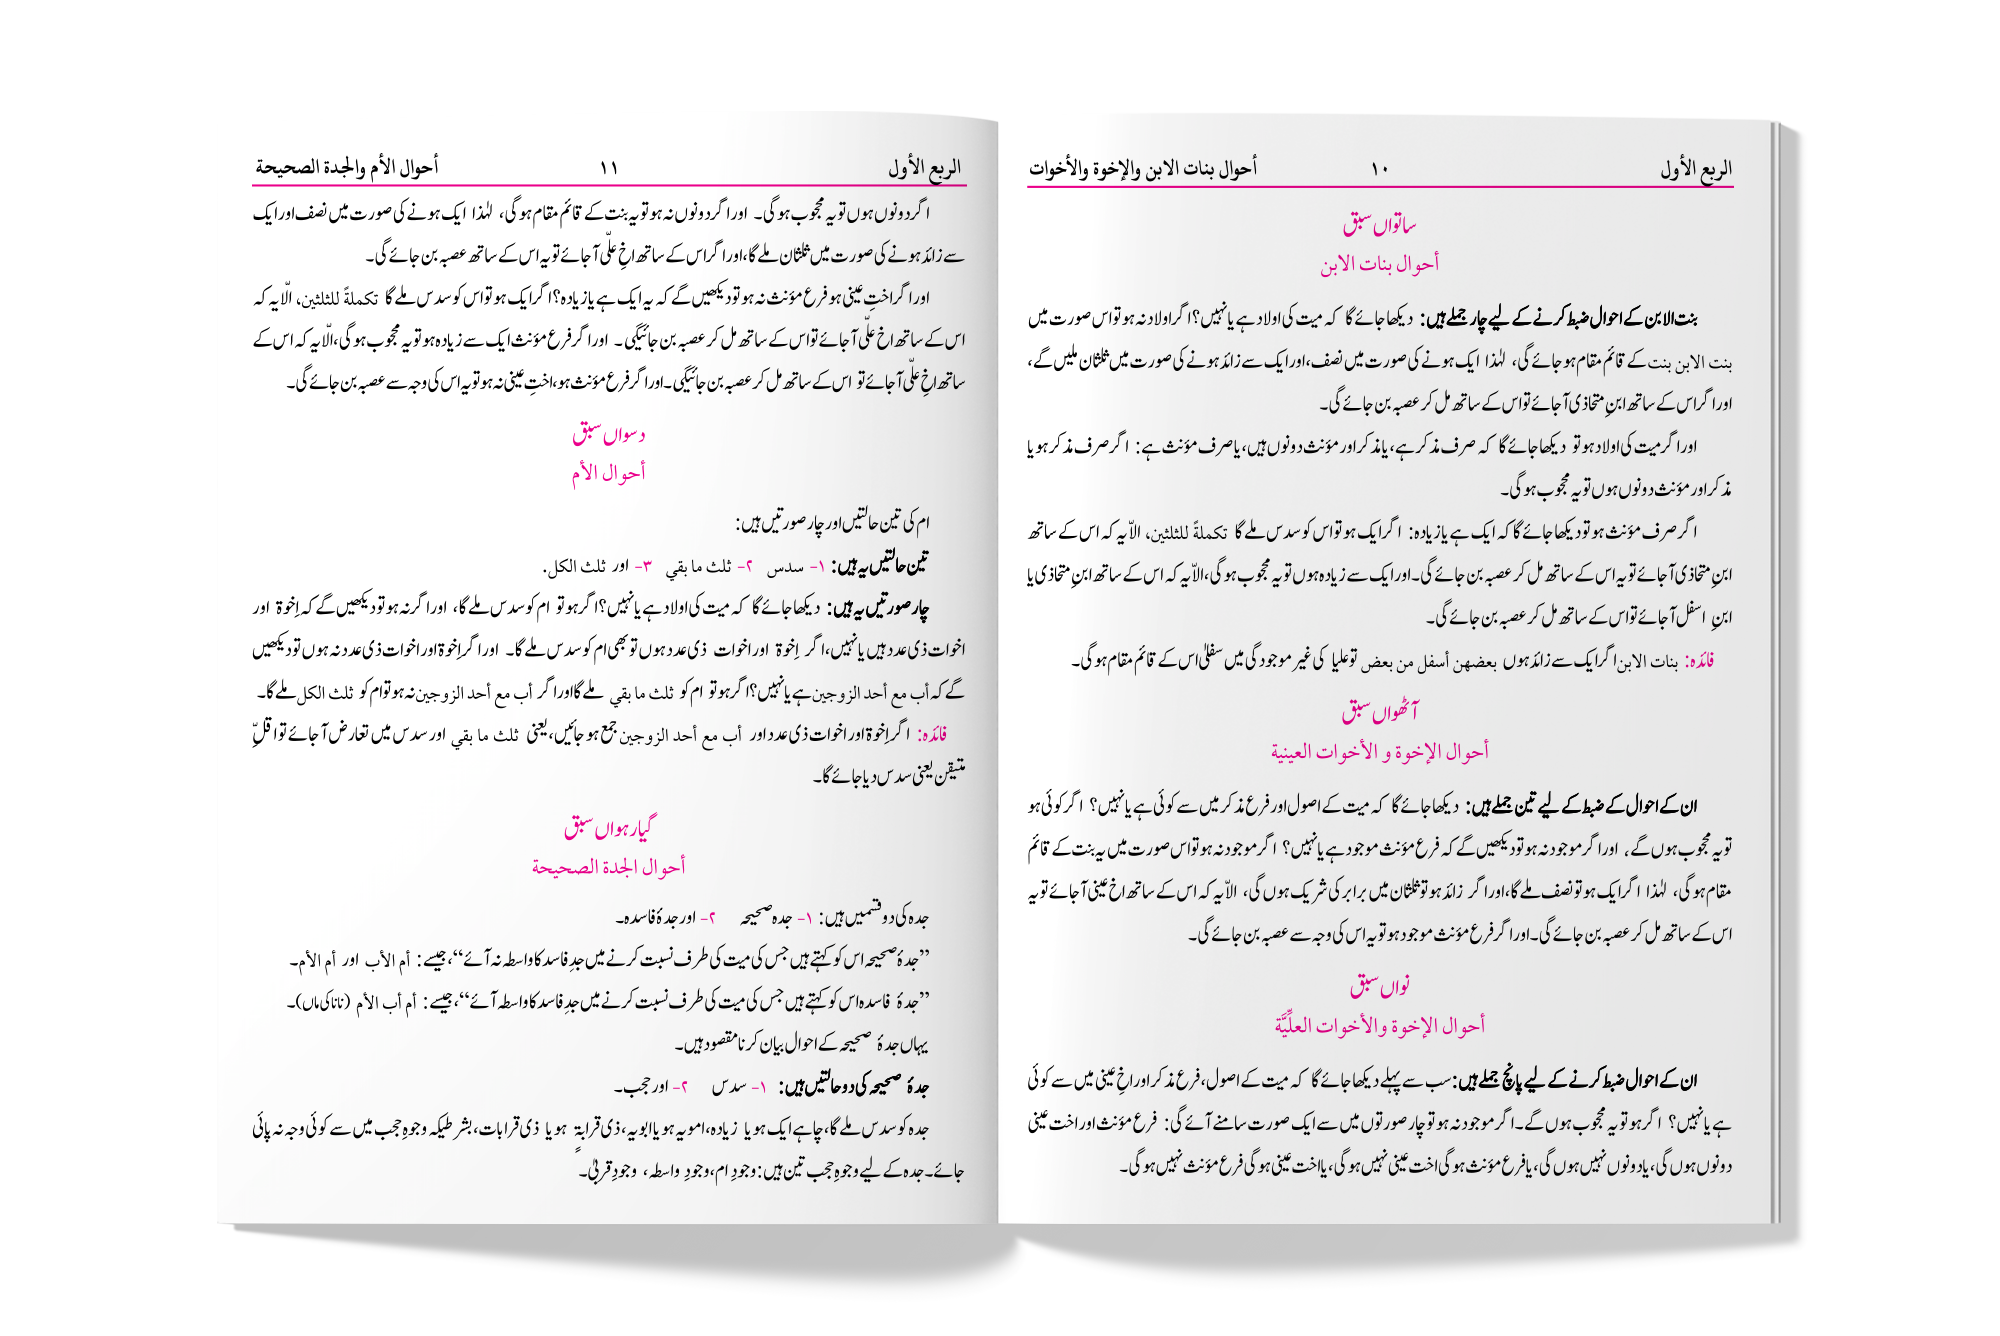 الربع الأول ۱۰ أحوال بنات الابن والإخوة والأخوات
ساتواں سبق
أحوال بنات الابن
بنت الابن کے احوال ضبط کرنے کے لیے چار جملے ہیں: دیکھا جائے گا کہ میت کی اولاد ہے یا نہیں؟ اگر اولاد نہ ہو تو اس صورت میں
بنت الابن بنت کے قائم مقام ہو جائے گی، لہٰذا ایک ہونے کی صورت میں نصف، اور ایک سے زائد ہونے کی صورت میں ثلثان ملیں گے،
اور اگر اس کے ساتھ ابنِ متحاذی آ جائے تو اس کے ساتھ مل کر عصبہ بن جائے گی۔
اور اگر میت کی اولاد ہو تو دیکھا جائے گا کہ صرف مذکر ہے، یا مذکر اور مؤنث دونوں ہیں، یا صرف مؤنث ہے: اگر صرف مذکر ہو یا
مذکر اور مؤنث دونوں ہوں تو یہ محجوب ہوگی۔
اگر صرف مؤنث ہو تو دیکھا جائے گا کہ ایک ہے یا زیادہ: اگر ایک ہو تو اس کو سدس ملے گا تكملةً للثلثين، الّا یہ کہ اس کے ساتھ
ابنِ متحاذی آ جائے تو یہ اس کے ساتھ مل کر عصبہ بن جائے گی۔ اور ایک سے زیادہ ہوں تو یہ محجوب ہوگی، الّا یہ کہ اس کے ساتھ ابنِ متحاذی یا
ابنِ اسفل آ جائے تو اس کے ساتھ مل کر عصبہ بن جائے گی۔
فائدہ: بنات الابن اگر ایک سے زائد ہوں بعضهن أسفل من بعض تو علیا کی غیر موجودگی میں سفلیٰ اس کے قائم مقام ہوگی۔
آٹھواں سبق
أحوال الإخوة و الأخوات العينية
ان کے احوال کے ضبط کے لیے تین جملے ہیں: دیکھا جائے گا کہ میت کے اصول اور فرع مذکر میں سے کوئی ہے یا نہیں؟ اگر کوئی ہو
تو یہ محجوب ہوں گے، اور اگر موجود نہ ہو تو دیکھیں گے کہ فرع مؤنث موجود ہے یا نہیں؟ اگر موجود نہ ہو تو اس صورت میں یہ بنت کے قائم
مقام ہوگی، لہٰذا اگر ایک ہو تو نصف ملے گا، اور اگر زائد ہو تو ثلثان میں برابر کی شریک ہوں گی، الّا یہ کہ اس کے ساتھ اخ عینی آ جائے تو یہ
اس کے ساتھ مل کر عصبہ بن جائے گی۔ اور اگر فرع مؤنث موجود ہو تو یہ اس کی وجہ سے عصبہ بن جائے گی۔
نواں سبق
أحوال الإخوة والأخوات العلِّيَّة
ان کے احوال ضبط کرنے کے لیے پانچ جملے ہیں: سب سے پہلے دیکھا جائے گا کہ میت کے اصول، فرع مذکر اور اخِ عینی میں سے کوئی
ہے یا نہیں؟ اگر ہو تو یہ محجوب ہوں گے۔ اگر موجود نہ ہو تو چار صورتوں میں سے ایک صورت سامنے آئے گی: فرع مؤنث اور اخت عینی
دونوں ہوں گی، یا دونوں نہیں ہوں گی، یا فرع مؤنث ہوگی اخت عینی نہیں ہوگی، یا اخت عینی ہوگی فرع مؤنث نہیں ہوگی۔
الربع الأول ۱۱ أحوال الأم والجدة الصحيحة
اگر دونوں ہوں تو یہ محجوب ہوگی۔ اور اگر دونوں نہ ہو تو یہ بنت کے قائم مقام ہوگی، لہٰذا ایک ہونے کی صورت میں نصف اور ایک
سے زائد ہونے کی صورت میں ثلثان ملے گا، اور اگر اس کے ساتھ اخِ علّی آ جائے تو یہ اس کے ساتھ عصبہ بن جائے گی۔
اور اگر اختِ عینی ہو فرع مؤنث نہ ہو تو دیکھیں گے کہ یہ ایک ہے یا زیادہ؟ اگر ایک ہو تو اس کو سدس ملے گا تكملةً للثلثين، الّا یہ کہ
اس کے ساتھ اخ علّی آ جائے تو اس کے ساتھ مل کر عصبہ بن جائیگی۔ اور اگر فرع مؤنث ایک سے زیادہ ہو تو یہ محجوب ہوگی، الّا یہ کہ اس کے
ساتھ اخِ علّی آ جائے تو اس کے ساتھ مل کر عصبہ بن جائیگی۔ اور اگر فرع مؤنث ہو، اختِ عینی نہ ہو تو یہ اس کی وجہ سے عصبہ بن جائے گی۔
دسواں سبق
أحوال الأم
ام کی تین حالتیں اور چار صورتیں ہیں:
تین حالتیں یہ ہیں: ۱- سدس ۲- ثلث ما بقي ۳- اور ثلث الكل.
چار صورتیں یہ ہیں: دیکھا جائے گا کہ میت کی اولاد ہے یا نہیں؟ اگر ہو تو ام کو سدس ملے گا، اور اگر نہ ہو تو دیکھیں گے کہ اِخوۃ اور
اخوات ذی عدد ہیں یا نہیں، اگر اِخوۃ اور اخوات ذی عدد ہوں تو بھی ام کو سدس ملے گا۔ اور اگر اِخوۃ اور اخوات ذی عدد نہ ہوں تو دیکھیں
گے کہ أب مع أحد الزوجين ہے یا نہیں؟ اگر ہو تو ام کو ثلث ما بقي ملے گا اور اگر أب مع أحد الزوجين نہ ہو تو ام کو ثلث الكل ملے گا۔
فائدہ: اگر اِخوۃ اور اخوات ذی عدد اور أب مع أحد الزوجين جمع ہو جائیں، یعنی ثلث ما بقي اور سدس میں تعارض آ جائے تو اقلِّ
متیقن یعنی سدس دیا جائے گا۔
گیارہواں سبق
أحوال الجدة الصحيحة
جدہ کی دو قسمیں ہیں: ۱- جدہ صحیحہ ۲- اور جدۂ فاسدہ۔
”جدۂ صحیحہ اس کو کہتے ہیں جس کی میت کی طرف نسبت کرنے میں جدِ فاسد کا واسطہ نہ آئے“، جیسے: أم الأب اور أم الأم۔
”جدۂ فاسدہ اس کو کہتے ہیں جس کی میت کی طرف نسبت کرنے میں جدِ فاسد کا واسطہ آئے“، جیسے: أم أب الأم (نانا کی ماں)۔
یہاں جدۂ صحیحہ کے احوال بیان کرنا مقصود ہیں۔
جدۂ صحیحہ کی دو حالتیں ہیں: ۱- سدس ۲- اور حجب۔
جدہ کو سدس ملے گا، چاہے ایک ہو یا زیادہ، امویہ ہو یا ابویہ، ذی قرابۃٍ ہو یا ذی قرابات، بشرطیکہ وجوہِ حجب میں سے کوئی وجہ نہ پائی
جائے۔ جدہ کے لیے وجوہِ حجب تین ہیں: وجودِ ام، وجودِ واسطہ، وجودِ قربیٰ۔